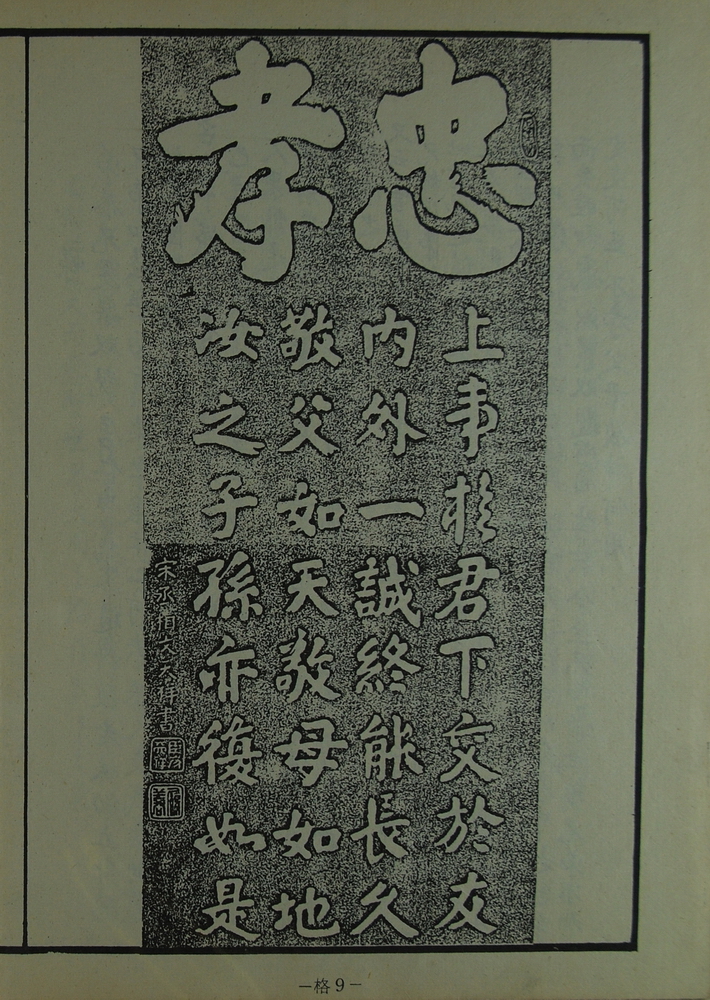 忠孝
上事於君下交於友
内外一誠終能長久
敬父如天敬母如地
汝之子孫亦復如是
宋丞相文天祥書
—格9—